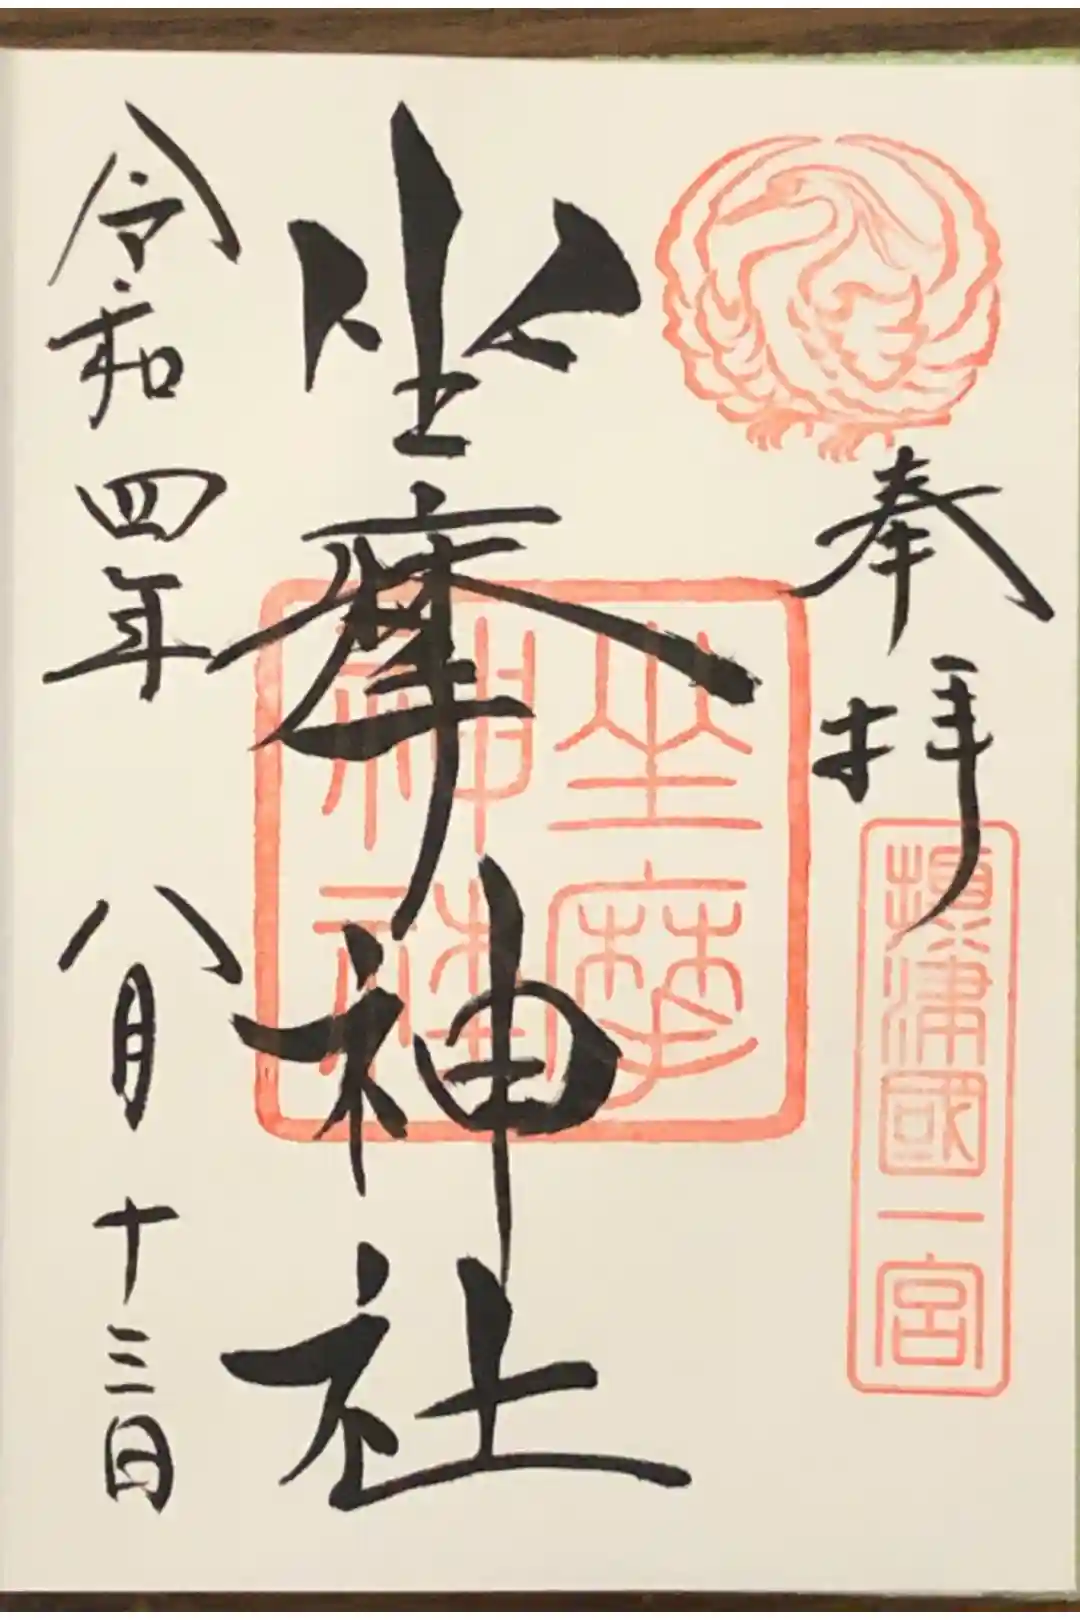 奉拝
攝津國一宮
坐摩神社
坐摩神社
令和四年 八月十三日